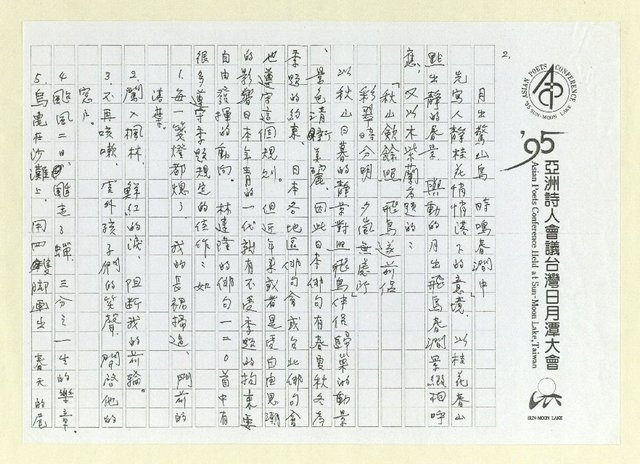 ASIAN POETS CONFERENCE
'95 SUN-MOON LAKE
'95
亞洲詩人會議台灣日月潭大會
Asian Poets Conference Held at Sun-Moon Lake, Taiwan
SUN-MOON LAKE
2.
月出驚山鳥 時鳴春澗中
先寫人靜桂花悄悄落下的意境，以桂花春山
點出靜的春景 與動的月出飛鳥春澗景緻相呼
應，又以木柴蘭為題的：
「秋山斂餘照 飛鳥逐前侶
彩翠時分明 夕嵐無處所」
以秋山日暮的靜景對照飛鳥伴侶歸巢的動景
、景色清新美麗。因此日本俳句有春夏秋冬為
季題的約束，日本各地區俳句會或台北俳句會
也遵守這個規則。但近年來或者是受自由思潮
的影響日本年青的一代就有不受季題的拘束要
自由發揮的動向。林建隆的俳句一一〇首中有
很多遵守季題規定的佳作：如
1. 每一盞燈都熄了，我的長裙掃過，門前的
落葉。
2. 闖入楓林，鮮紅的淚，阻斷我的前輪。
3. 不再咳嗽，窗外孩子們的笑聲，開啟他的
窗戶。
4. 颱風二日，颳走了蟬，三分之一生的樂章。
5. 烏龜在沙灘上，用四隻腳畫出，春天的尾